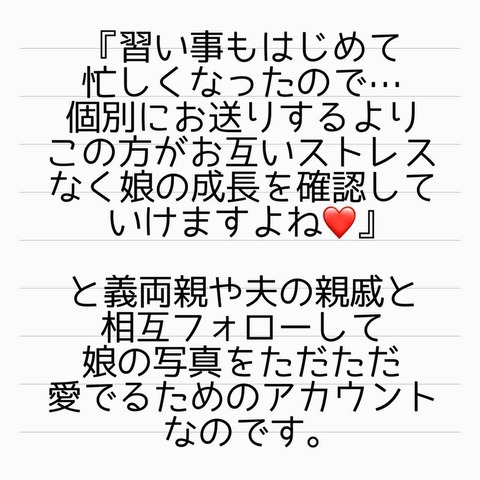 『習い事もはじめて
忙しくなったので…
個別にお送りするより
この方がお互いストレス
なく娘の成長を確認して
いけますよね❤️』
と義両親や夫の親戚と
相互フォローして
娘の写真をただただ
愛でるためのアカウント
なのです。